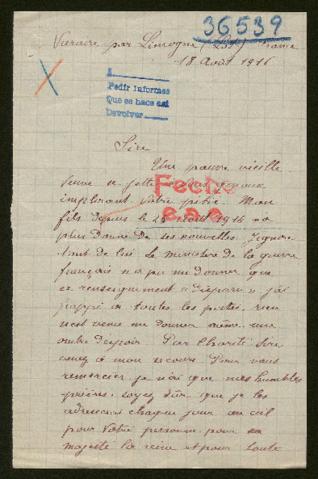 36539
Varaire par Limogne (Lot) France
18 Août 1916
1
Pedir informes
Que se hace así
Devolver
Sire
Une pauvre vieille
femme se jette à vos genoux
implorant votre pitié. Mon
fils depuis le 24 août 1914 n'a
Fecho
plus donné de ses nouvelles. J'ignore
tout de lui le ministère de la guerre
français n'a pu me donner que
ce renseignement "disparu" j'ai
frappé à toutes les portes, rien
n'est venu me donner même une
ombre d'espoir. Par charité Sire
venez à mon secours. Pour vous
remercier je n'ai que mes humbles
prières; soyez sûr que je les
adresserai chaque jour au ciel
pour votre personne pour sa
majesté la reine et pour toute